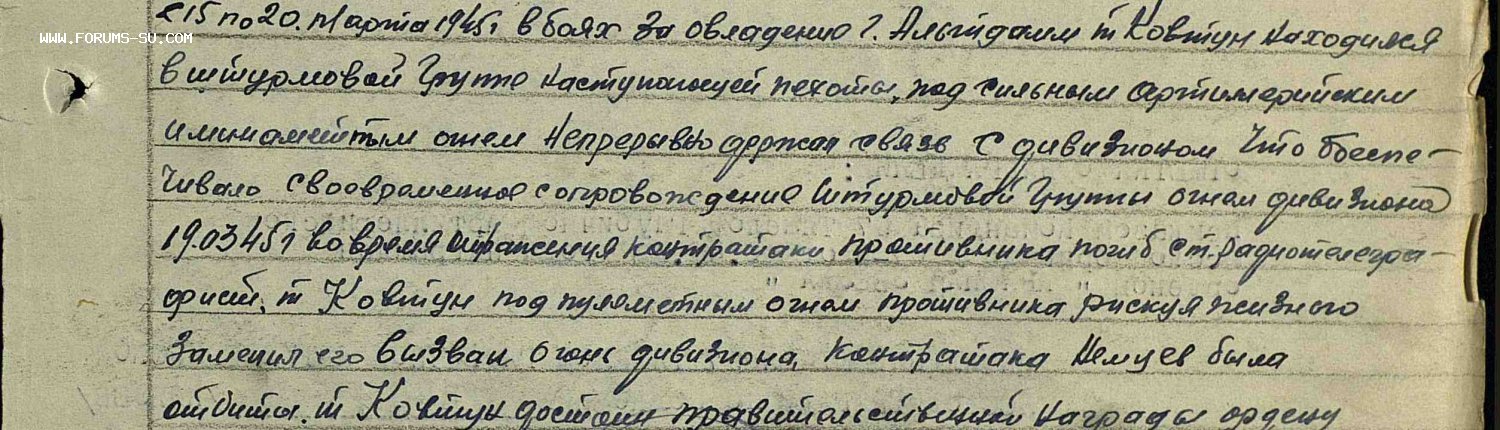 WWW.FORUMS-SU.COM
с 15 по 20. Марта 1945г в боях за овладение г. Альтдамм т Ковтун находился
в штурмовой группе наступающей пехоты, под сильным артиллерийским
и минаметным огнем непрерывно держал связь с дивизионом что боеспе-
чивало своевременное сопровождение штурмовой группы огнем дивизиона
19.03.45г во время отражения контратаки противника погиб ст. радиотелегра-
фист. т Ковтун под пулеметным огнем противника рискуя жизнью
заменил его вызвал огонь дивизиона, контратака немцев была
отбита. т Ковтун достоин правительственной награды ордену